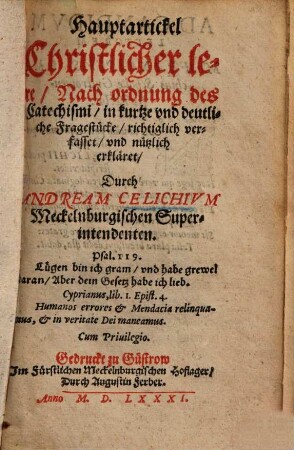 Hauptartickel
Christlicher le-
re / Nach ordnung des
Catechismi / in kurtze vnd deutli-
che Fragestücke / richtiglich ver-
fasset / vnd nützlich
erkläret /
Durch
ANDREAM CELICHIVM
Meckelnburgischen Super-
intendenten.
Psal. 119.
Lügen bin ich gram / vnd habe grewel
daran / Aber dein Gesetz habe ich lieb.
Cyprianus, lib. 1. Epist. 4.
Humanos errores & Mendacia relinqua-
mus, & in veritate Dei maneamus.
Cum Priuilegio.
Gedruckt zu Güstrow
Im Fürstlichen Meckelnburgischen Hoflager /
Durch Augustin Ferber.
Anno M. D. LXXXI.